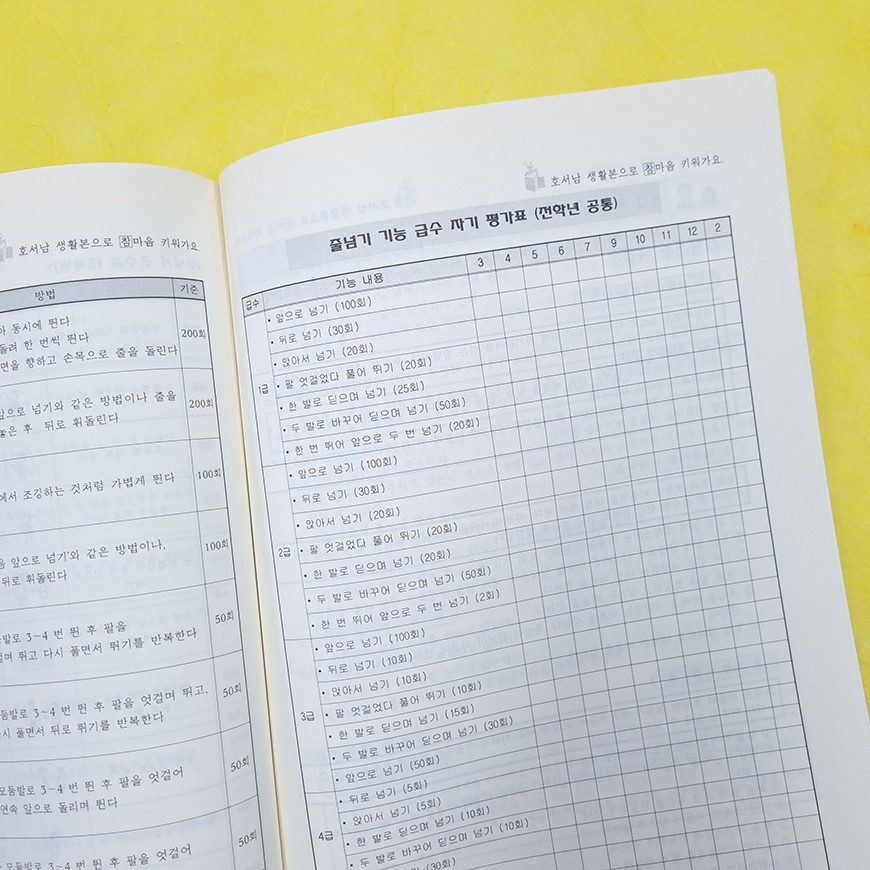 호서남 생활본으로 참마음 키워가요.
방법 기준
동시에 뛴다
한 번씩 뛴다
향하고 손목으로 줄을 돌린다 200회
앞으로 넘기와 같은 방법이나 줄을
후 뒤로 휘돌린다 200회
조깅하는 것처럼 가볍게 뛴다 100회
앞으로 넘기'와 같은 방법이나,
뒤로 휘돌린다 100회
3~4 번 뛴 후 팔을
뛰고 다시 풀면서 뛰기를 반복한다 50회
3~4 번 뛴 후 팔을 엇걸며 뛰고,
풀면서 뒤로 뛰기를 반복한다 50회
모둠발로 3~4 번 뛴 후 팔을 엇걸어
연속 앞으로 돌리며 뛴다 50회
모둠발로 3~4 번 뛴 후 팔을 엇걸어 50회
호서남 생활본으로 참마음 키워가요.
줄넘기 기능 급수 자기 평가표 (전학년 공통)
급수 기능 내용 3 4 5 6 7 9 10 11 12 2
1급
• 앞으로 넘기 (100회)
• 뒤로 넘기 (30회)
• 앉아서 넘기 (20회)
• 팔 엇걸었다 풀어 뛰기 (20회)
• 한 발로 딛으며 넘기 (25회)
• 두 발로 바꾸어 딛으며 넘기 (50회)
• 한 번 뛰어 앞으로 두 번 넘기 (20회)
2급
• 앞으로 넘기 (100회)
• 뒤로 넘기 (30회)
• 앉아서 넘기 (20회)
• 팔 엇걸었다 풀어 뛰기 (20회)
• 한 발로 딛으며 넘기 (20회)
• 두 발로 바꾸어 딛으며 넘기 (50회)
• 한 번 뛰어 앞으로 두 번 넘기 (2회)
3급
• 앞으로 넘기 (100회)
• 뒤로 넘기 (10회)
• 앉아서 넘기 (10회)
• 팔 엇걸었다 풀어 뛰기 (10회)
• 한 발로 딛으며 넘기 (15회)
• 두 발로 바꾸어 딛으며 넘기 (30회)
4급
• 앞으로 넘기 (50회)
• 뒤로 넘기 (5회)
• 앉아서 넘기 (5회)
• 한 발로 딛으며 넘기 (10회)
• 두 발로 바꾸어 딛으며 넘기 (10회)
(30회)